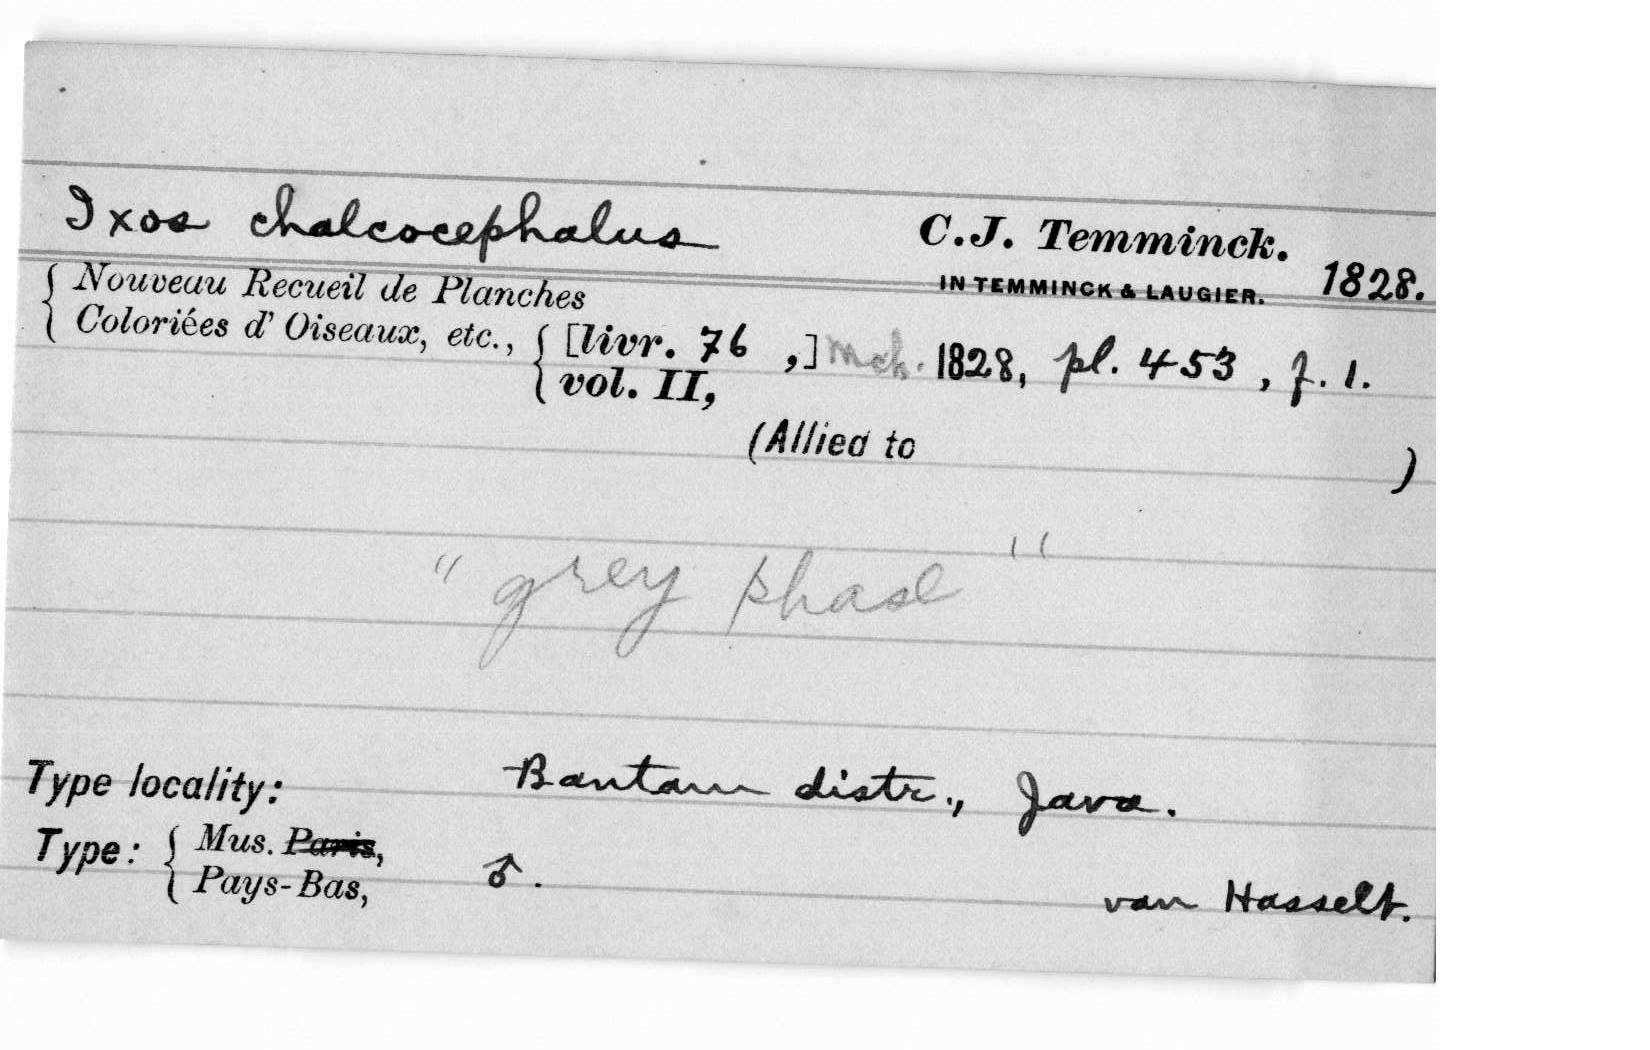 Ixos chalcocephalus C.J. Temminck.
IN TEMMINCK & LAUGIER. 1828.
{ Nouveau Recueil de Planches
Coloriées d' Oiseaux, etc., { [livr. 76 ,] Mch. 1828, pl. 453, f. 1.
vol. II,
(Allied to )
"grey phase"
Type locality: Bantam distr., Java.
Type: { Mus. Paris,
Pays-Bas, ♂. van Hasselt.